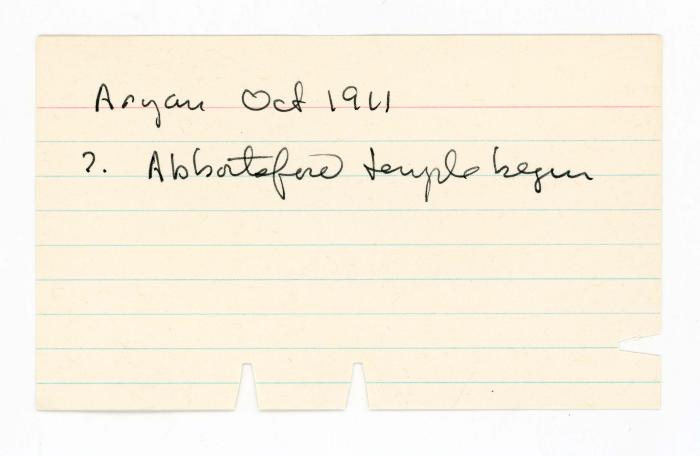 Aryan Oct 1911
?. Abbortsford temple begun